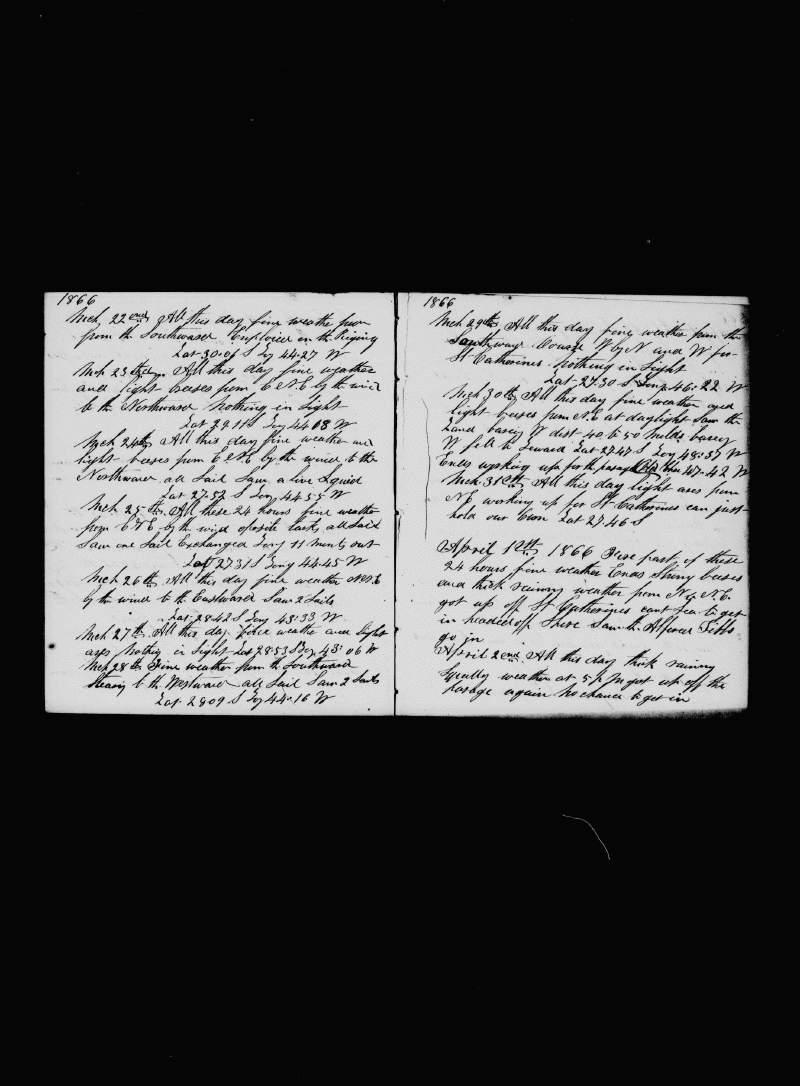 1866
Mch 22ond All this day fine weathe from
from the Southward Employed in the Riging
Lat 30·06 S Lög 44·27 W
Mch 23 All this day fine weather
and light breses from E N E by the wind
to the Northward Nothing in Sight
Lat 29 11 S Log 44 08 W
Mch 24th All this day fine weather and
light breses from E N E by the wind to the
Northward all Sail Saw a live Squid
Lat 27·52 S Log 44 55 W
Mch 25th All these 24 hours fine weather
from E N E by the wind oposite tacks all Sail
Saw one Sail Exchanged Long 11 minuts out
Lat 27 31 S Long 44·45 W
Mch 26th All this day fine weather
by the wind to the Eastward Saw 2 Sails
Lat 28 42 S Long 43·33 W
Mch 27th All this day fine weathe and light
airs Nothing in Sight Lat 28·53 S Log 43·06 W
Mch 28th Fine weather from the Southward
Stearing to the Westward all Sail Saw 2 Sails
Lat 28 09 S Log 44·16 W
1866
Mch 29th All this day fine weather from the
Course W by N and W for
St Catherines Nothing in Sight
Lat 27·30 S Long 46·22 W
Mch 30th All this day fine weather and
light breses from N.E at daylight Saw the
Land baring W dist 40 to 50 baring
W fell to Leward Lat 27·47 S Log 48·37 W
Ends working up for the 47·42 W
Mch 31st All this day light ares from
N E working up for St Catherines can just
hold our own Lat 27·46 S
April 1st 1866 Firse part of these
24 hours fine weather Ends Strong breses
and thick rainny weather from N & N.E.
got up off St Catherines cant Sea to get
in headed off Shore Saw th
go in
April 2ond All this day thick rainny
Squally weather at 5 P M got up off the
pasage again No chance to get in